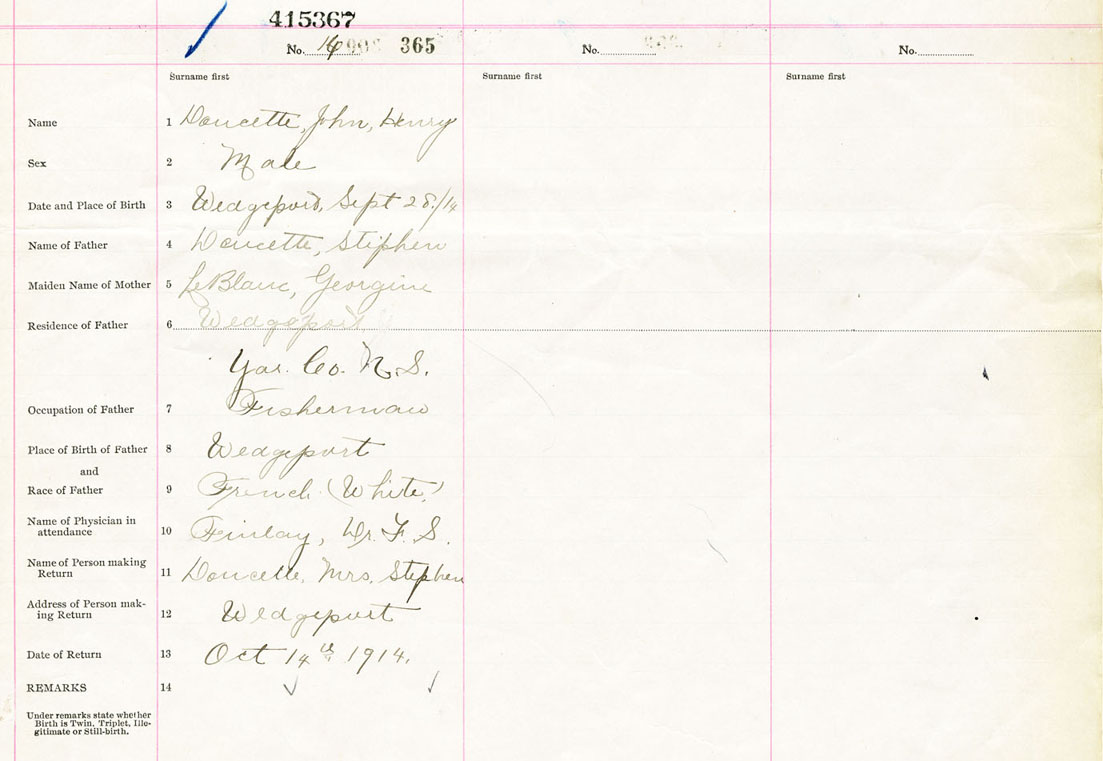 415367
No. 16 365 No. No.
Surname first Surname first Surname first
Name 1 Doucette, John, Henry
Sex 2 Male
Date and Place of Birth 3 Wedgeport, Sept 28/14
Name of Father 4 Doucette, Stephen
Maiden Name of Mother 5 LeBlanc, Georgine
Residence of Father 6 Wedgeport
Yar. Co. N.S.
Occupation of Father 7 Fisherman
Place of Birth of Father 8 Wedgeport
and
Race of Father 9 French (White)
Name of Physician in
attendance 10 Finlay, Dr. F. S.
Name of Person making
Return 11 Doucette, Mrs. Stephen
Address of Person mak-
ing Return 12 Wedgeport
Date of Return 13 Oct 14th 1914.
REMARKS 14
Under remarks state whether
Birth is Twin, Triplet, Ille-
gitimate or Still-birth.